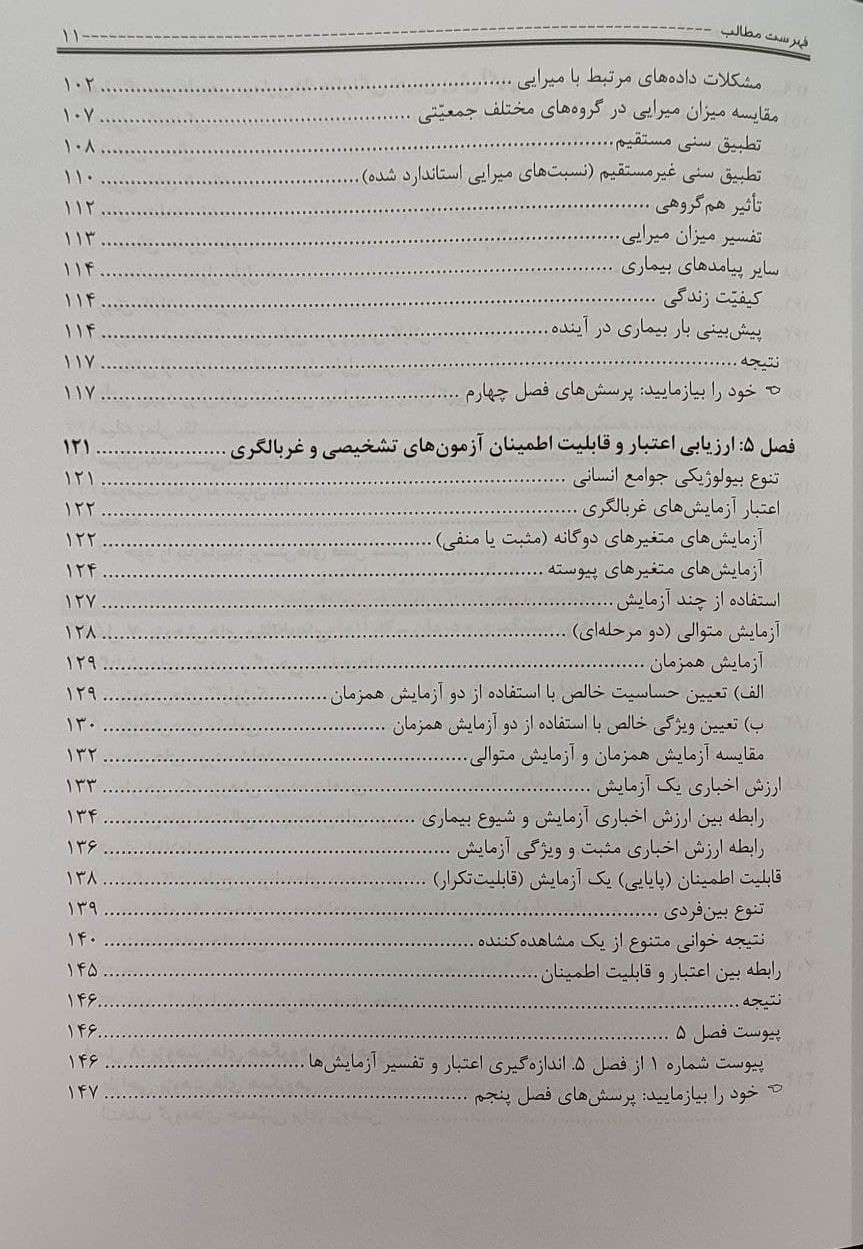 فهرست مطالب ---------- ۱۱
مشکلات داده‌های مرتبط با میرایی .......... ۱۰۲
مقایسه میزان میرایی در گروه‌های مختلف جمعیّتی .......... ۱۰۷
تطبیق سنی مستقیم .......... ۱۰۸
تطبیق سنی غیرمستقیم (نسبت‌های میرایی استاندارد شده) .......... ۱۱۰
تأثیر هم‌گروهی .......... ۱۱۲
تفسیر میزان میرایی .......... ۱۱۳
سایر پیامدهای بیماری .......... ۱۱۴
کیفیّت زندگی .......... ۱۱۴
پیش‌بینی بار بیماری در آینده .......... ۱۱۴
نتیجه .......... ۱۱۷
خود را بیازمایید: پرسش‌های فصل چهارم .......... ۱۱۷
فصل ۵: ارزیابی اعتبار و قابلیت اطمینان آزمون‌های تشخیصی و غربالگری .......... ۱۲۱
تنوع بیولوژیکی جوامع انسانی .......... ۱۲۱
اعتبار آزمایش‌های غربالگری .......... ۱۲۲
آزمایش‌های متغیرهای دوگانه (مثبت یا منفی) .......... ۱۲۲
آزمایش‌های متغیرهای پیوسته .......... ۱۲۴
استفاده از چند آزمایش .......... ۱۲۷
آزمایش متوالی (دو مرحله‌ای) .......... ۱۲۸
آزمایش همزمان .......... ۱۲۹
الف) تعیین حساسیت خالص با استفاده از دو آزمایش همزمان .......... ۱۲۹
ب) تعیین ویژگی خالص با استفاده از دو آزمایش همزمان .......... ۱۳۰
مقایسه آزمایش همزمان و آزمایش متوالی .......... ۱۳۲
ارزش اخباری یک آزمایش .......... ۱۳۳
رابطه بین ارزش اخباری آزمایش و شیوع بیماری .......... ۱۳۴
رابطه ارزش اخباری مثبت و ویژگی آزمایش .......... ۱۳۶
قابلیت اطمینان (پایایی) یک آزمایش (قابلیت‌تکرار) .......... ۱۳۸
تنوع بین‌فردی .......... ۱۳۹
نتیجه خوانی متنوع از یک مشاهده‌کننده .......... ۱۴۰
رابطه بین اعتبار و قابلیت اطمینان .......... ۱۴۵
نتیجه .......... ۱۴۶
پیوست فصل ۵ .......... ۱۴۶
پیوست شماره ۱ از فصل ۵. اندازه‌گیری اعتبار و تفسیر آزمایش‌ها .......... ۱۴۶
خود را بیازمایید: پرسش‌های فصل پنجم .......... ۱۴۷